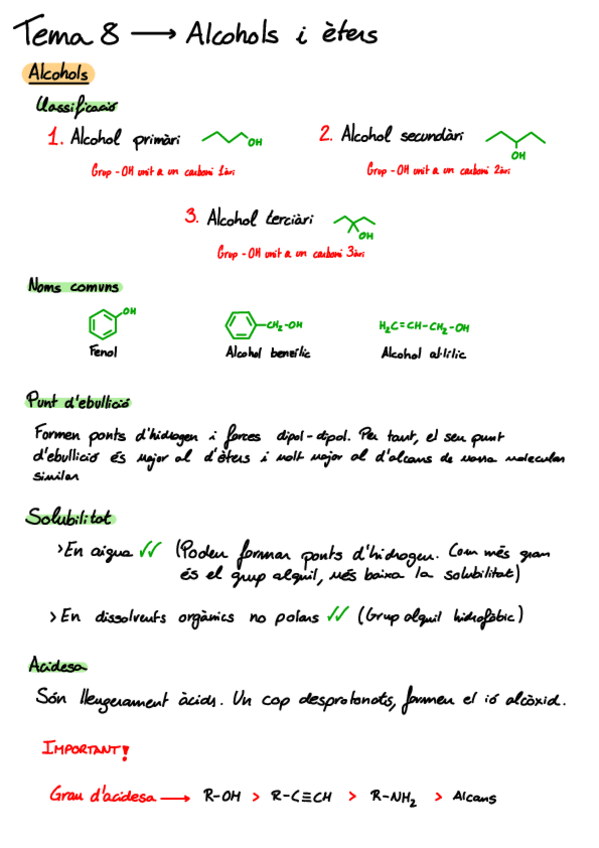 Tema 8 → Alcohols i èters
Alcohols
Classificació
1. Alcohol primàri OH 2. Alcohol secundàri OH
Grup -OH unit a un carboni 1àri Grup -OH unit a un carboni 2àri
3. Alcohol terciàri OH
Grup -OH unit a un carboni 3àri
Noms comuns
OH CH₂-OH H₂C=CH-CH₂-OH
Fenol Alcohol benzílic Alcohol al·lílic
Punt d'ebullició
Formen ponts d'hidrogen i forces dipol-dipol. Per tant, el seu punt
d'ebullició és major al d'èters i molt major al d'alcans de massa molecular
similar
Solubilitat
>En aigua ✓✓ (Poden formar ponts d'hidrogen. Com més gran
és el grup alquil, més baixa la solubilitat)
>En dissolvents orgànics no polars ✓✓ (Grup alquil hidrofòbic)
Acidesa
Són lleugerament àcids. Un cop desprotonats, formen el ió alcòxid.
IMPORTANT!
Grau d'acidesa → R-OH > R-C≡CH > R-NH₂ > Alcans